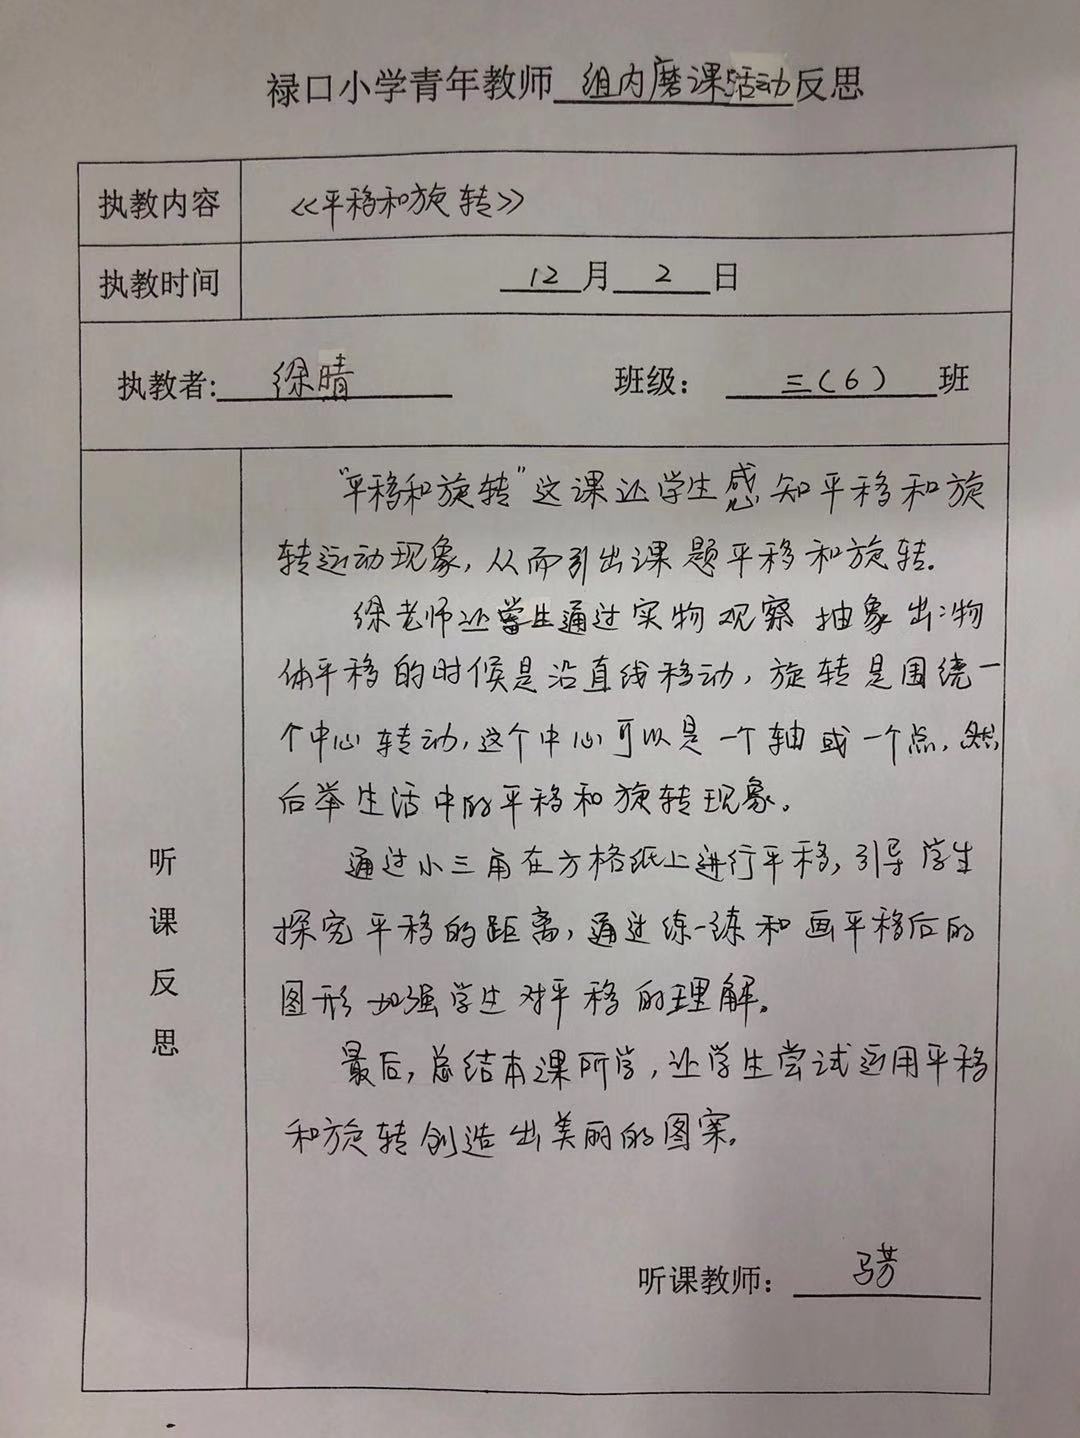 禄口小学青年教师 组内磨课活动反思
执教内容 《平移和旋转》
执教时间 12月2日
执教者: 徐晴 班级: 三(6) 班
"平移和旋转"这课让学生感知平移和旋
转运动现象,从而引出课题平移和旋转.
徐老师让学生通过实物观察抽象出:物
体平移的时候是沿直线移动,旋转是围绕一
个中心转动,这个中心可以是一个轴或一个点,然
后举生活中的平移和旋转现象。
通过小三角在方格纸上进行平移,引导学生
探究平移的距离,通过练一练和画平移后的
图形加强学生对平移的理解。
最后,总结本课所学,让学生尝试运用平移
和旋转创造出美丽的图案。
听课反思
听课教师: 马芳